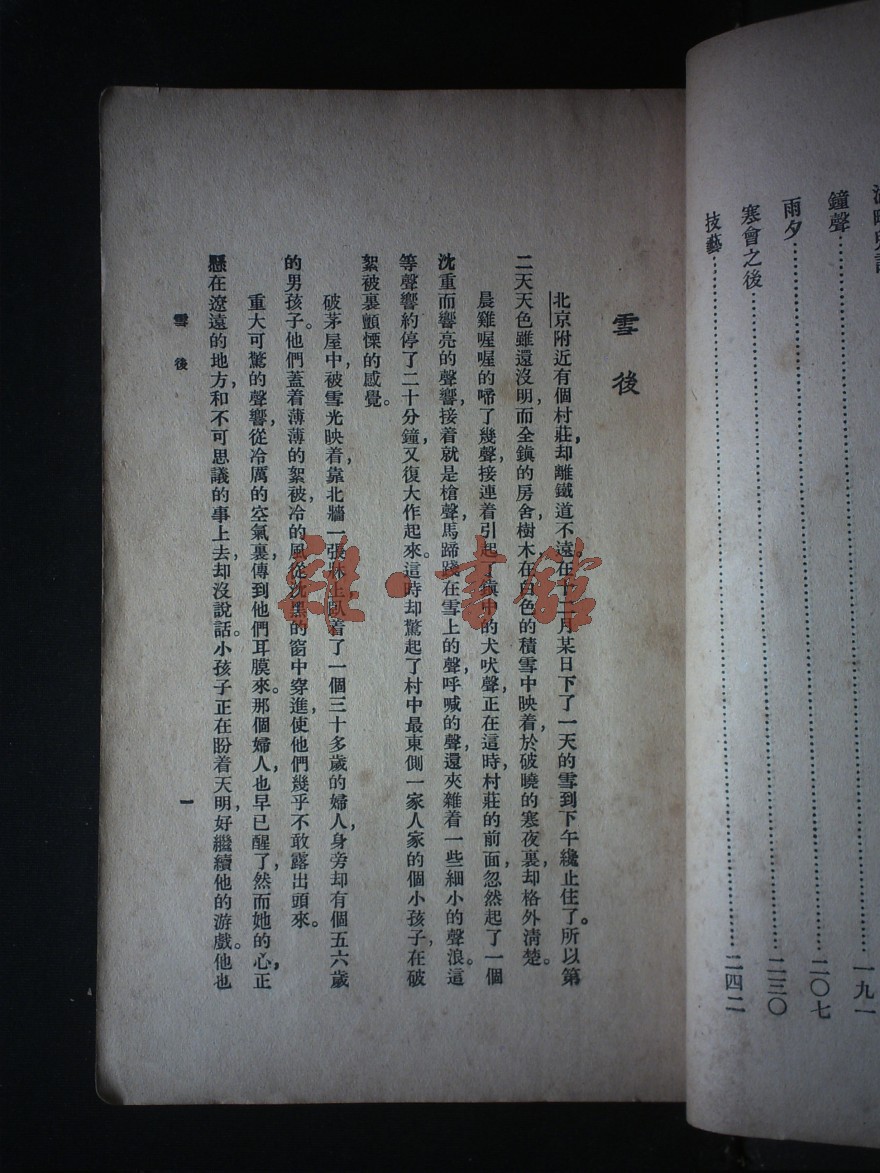 鐘聲……………………………一九一
雨夕……………………………二〇七
塞會之後……………………………二三〇
技藝……………………………二四二
雪後
北京附近有個村莊，却離鐵道不遠。在十二月某日下了一天的雪到下午纔止住了。所以第
二天天色雖還沒明，而全鎮的房舍樹木，在白色的積雪中映着，於破曉的寒夜裏，却格外清楚。
晨雞喔喔的啼了幾聲，接連着引起了鎮中的犬吠聲，正在這時，村莊的前面，忽然起了一個
沈重而響亮的聲響，接着就是槍聲，馬蹄踐在雪上的聲，呼喊的聲，還夾雜着一些細小的聲浪。這
等聲響約停了二十分鐘，又復大作起來。這時却驚起了村中最東側一家人家的個小孩子，在破
絮被裏顫慄的感覺。
破茅屋中，被雪光映着，靠北牆一張牀上，臥着了一個三十多歲的婦人，身旁却有個五六歲
的男孩子。他們蓋着薄薄的絮被，冷的風從沈黑的窗中穿進，使他們幾乎不敢露出頭來。
重大可驚的聲響，從冷厲的空氣裏，傳到他們耳膜來。那個婦人也早已醒了，然而她的心，正
懸在遼遠的地方，和不可思議的事上去，却沒說話。小孩子正在盼着天明，好繼續他的游戲。他也
雪後
一
雜·書館